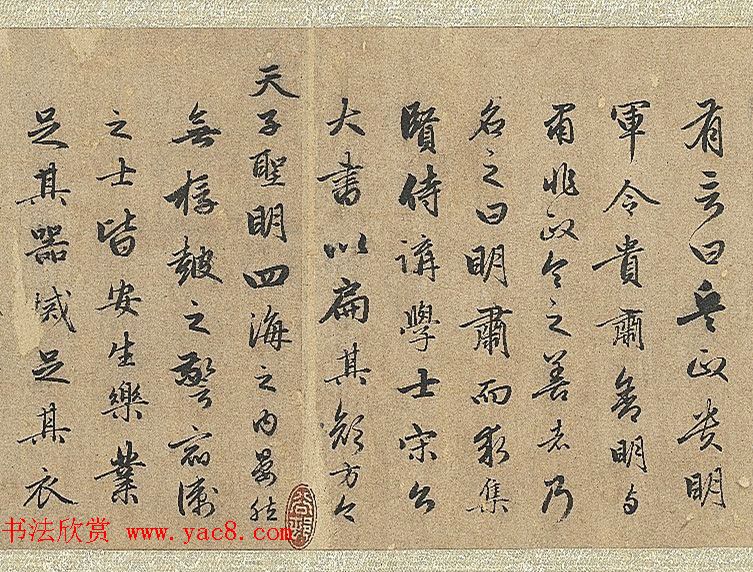 有言曰兵政貴明
軍令貴肅舍明與
肅非政令之善者乃
名之曰明肅而求集
賢侍講學士宋公
大書以扁其顏方今
天子聖明四海之内晏然
無桴皷之警宿衛
之士皆安生樂業
足其器械足其衣
书法欣赏 www.yac8.com